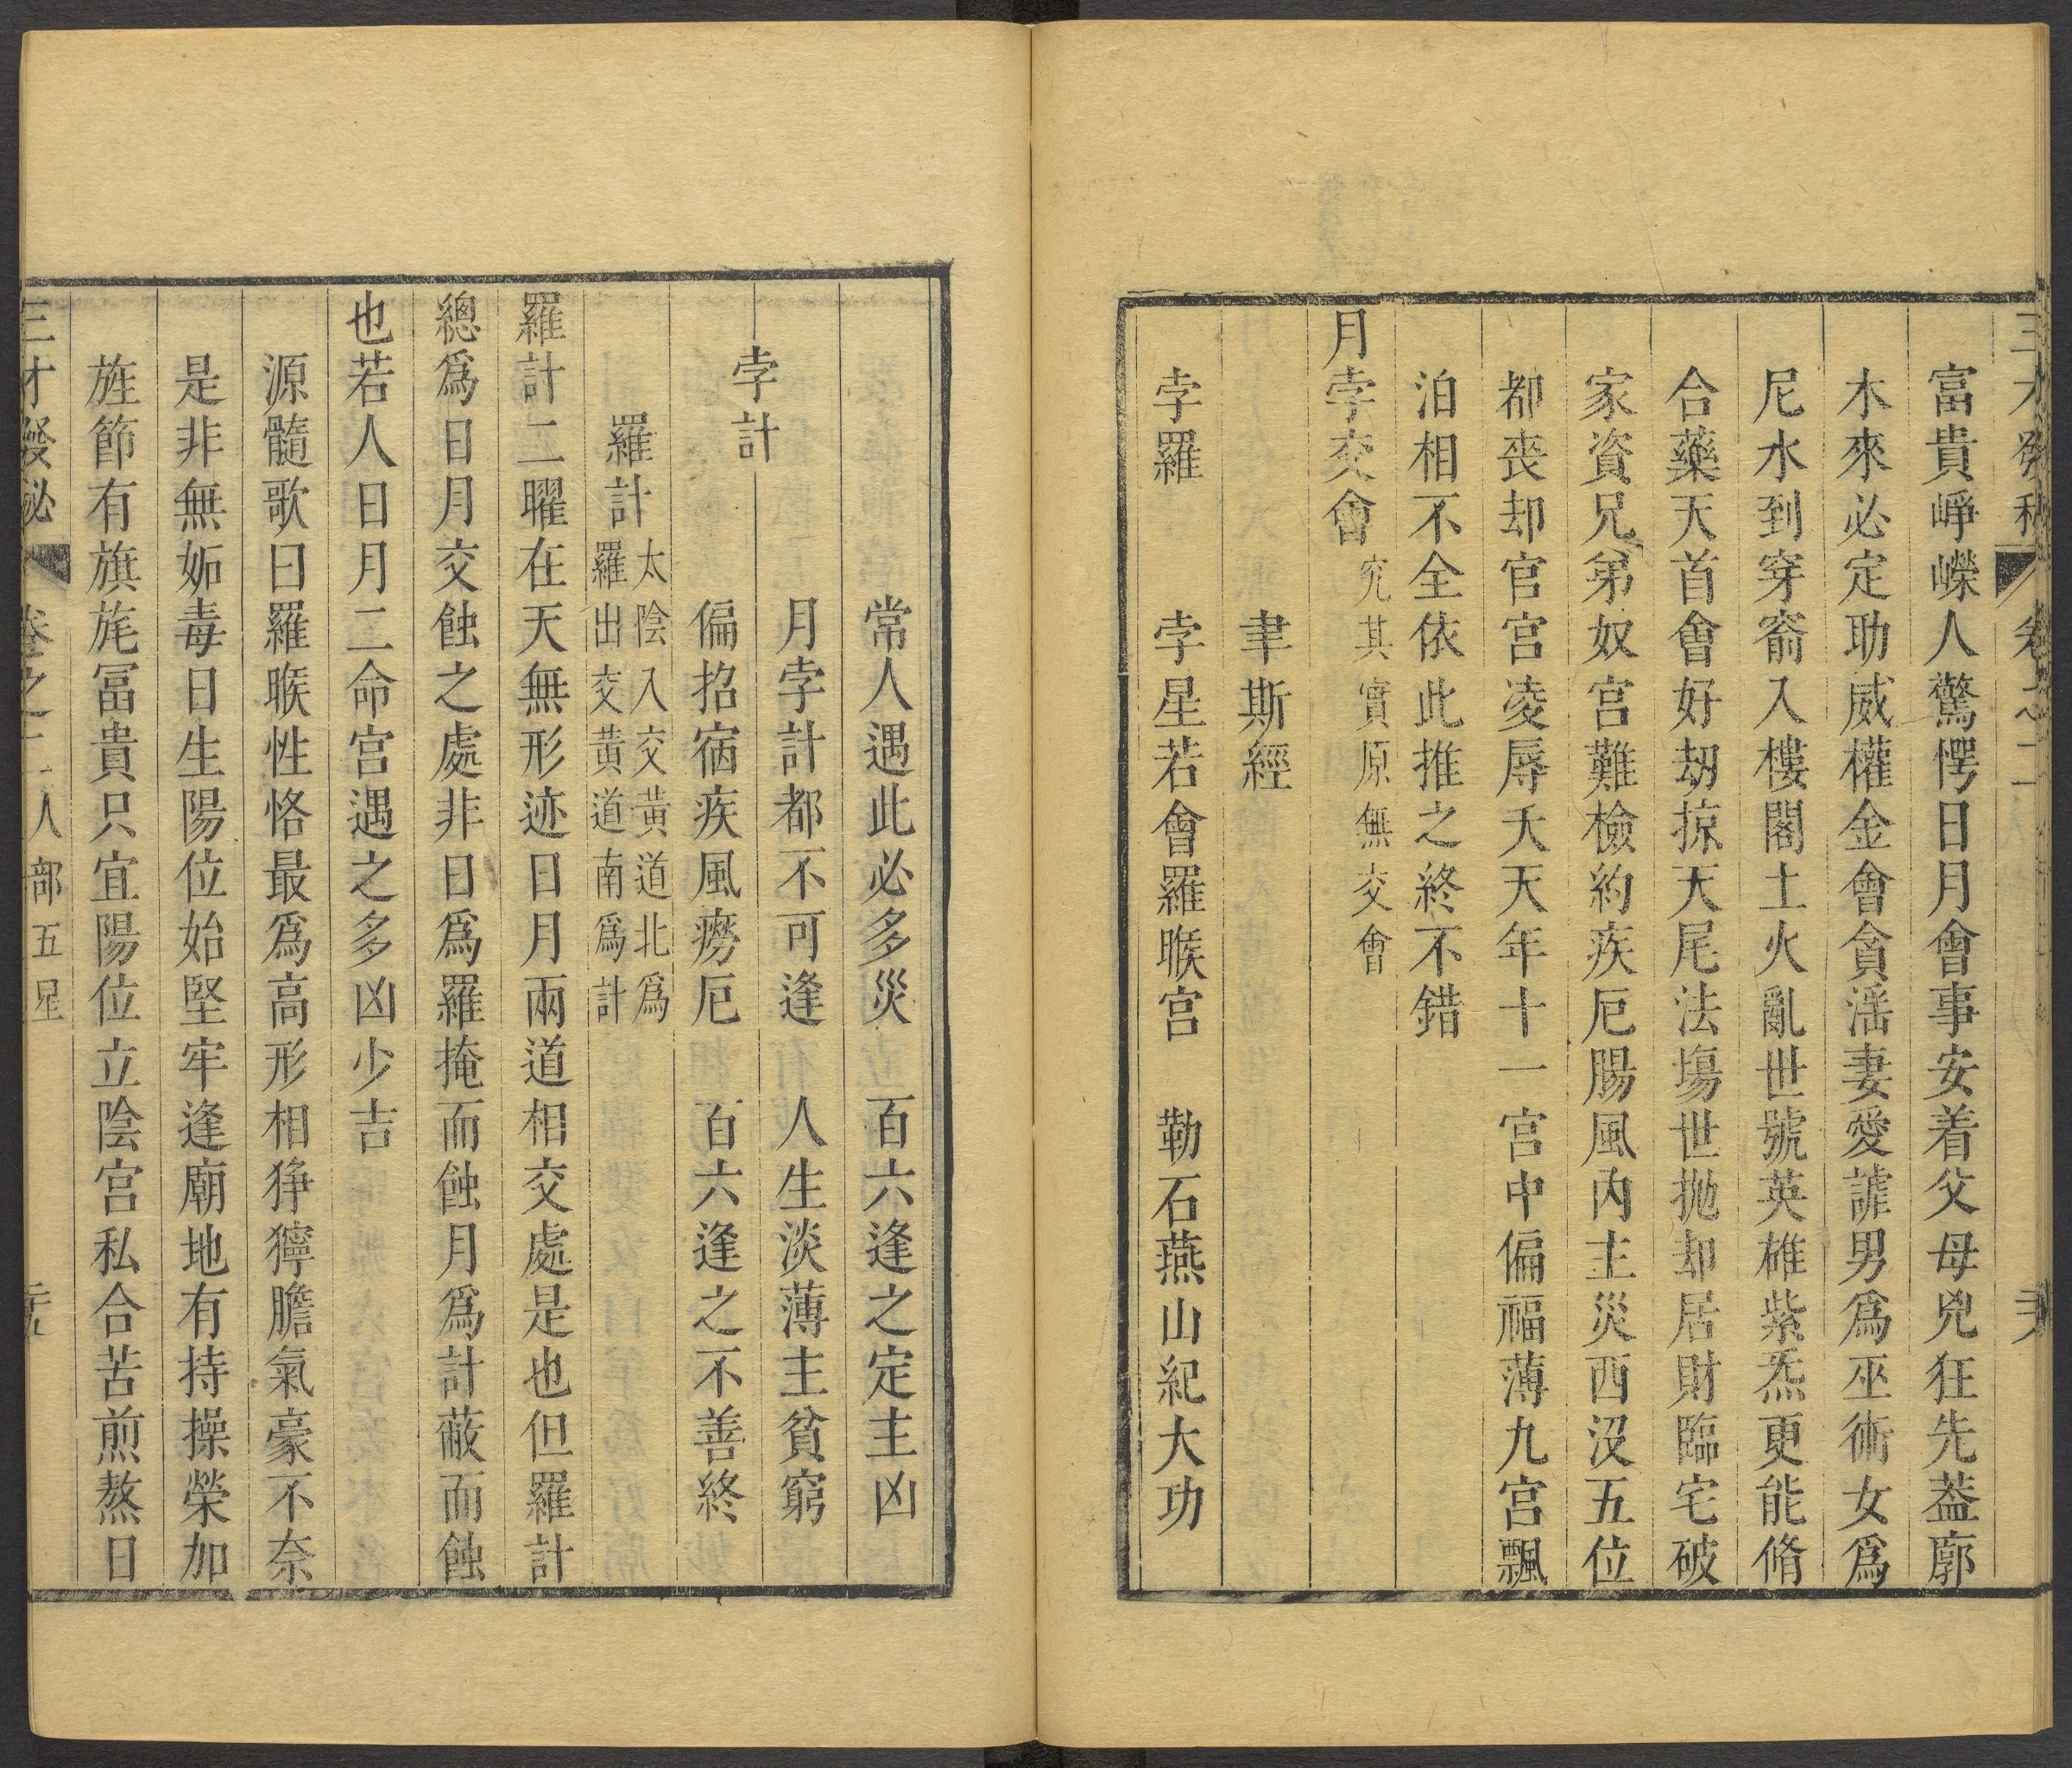 三才發秘 卷之二
富貴崢嶸人驚愕日月會事安着父母兇狂先蓋廓
木來必定助威權金會貪滛妻愛謔男爲巫術女爲
尼水到穿窬入樓閣土火亂世號英雄紫炁更能脩
合藥天首會好刼掠天尾法塲世抛却居財臨宅破
家資兄弟奴宫難檢約疾厄腸風内主災酉没五位
都丧却官宫凌辱夭天年十一宫中偏福薄九宫飄
泊相不全依此推之終不錯
月孛交會 究其實原無交會
聿斯經
孛羅 孛星若會羅睺宫 勒石燕山紀大功
常人遇此必多災 百六逢之定主凶
孛計
月孛計都不可逢 人生淡薄主貧窮
偏招宿疾風癆厄 百六逢之不善終
羅計 太陰入交黃道北爲
羅出交黃道南爲計
羅計二曜在天無形迹日月兩道相交處是也但羅計
總爲日月交蝕之處非日爲羅掩而蝕月爲計蔽而蝕
也若人日月二命宫遇之多凶少吉
源髓歌曰羅睺性恪最爲高形相猙獰膽氣豪不奈
是非無妬毒日生陽位始堅牢逢廟地有持操榮加
旌節有旗旄冨貴只宜陽位立陰宫私合苦煎熬日
三才發秘 卷之二 人部五星